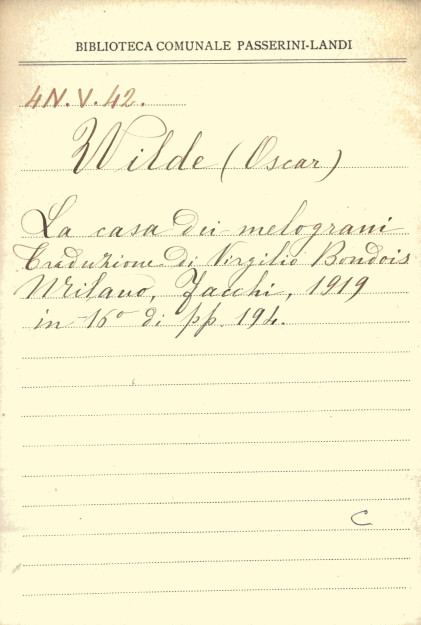 BIBLIOTECA COMUNALE PASSERINI-LANDI
4N.V.42.
Wilde (Oscar)
La casa dei melograni
Traduzione di Virgilio Bondois
Milano, Facchi, 1919
in-16° di pp. 194.
C